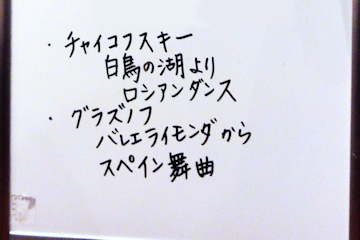 ・チャイコフスキー
白鳥の湖より
ロシアンダンス
・グラズノフ
バレエライモンダから
スペイン舞曲